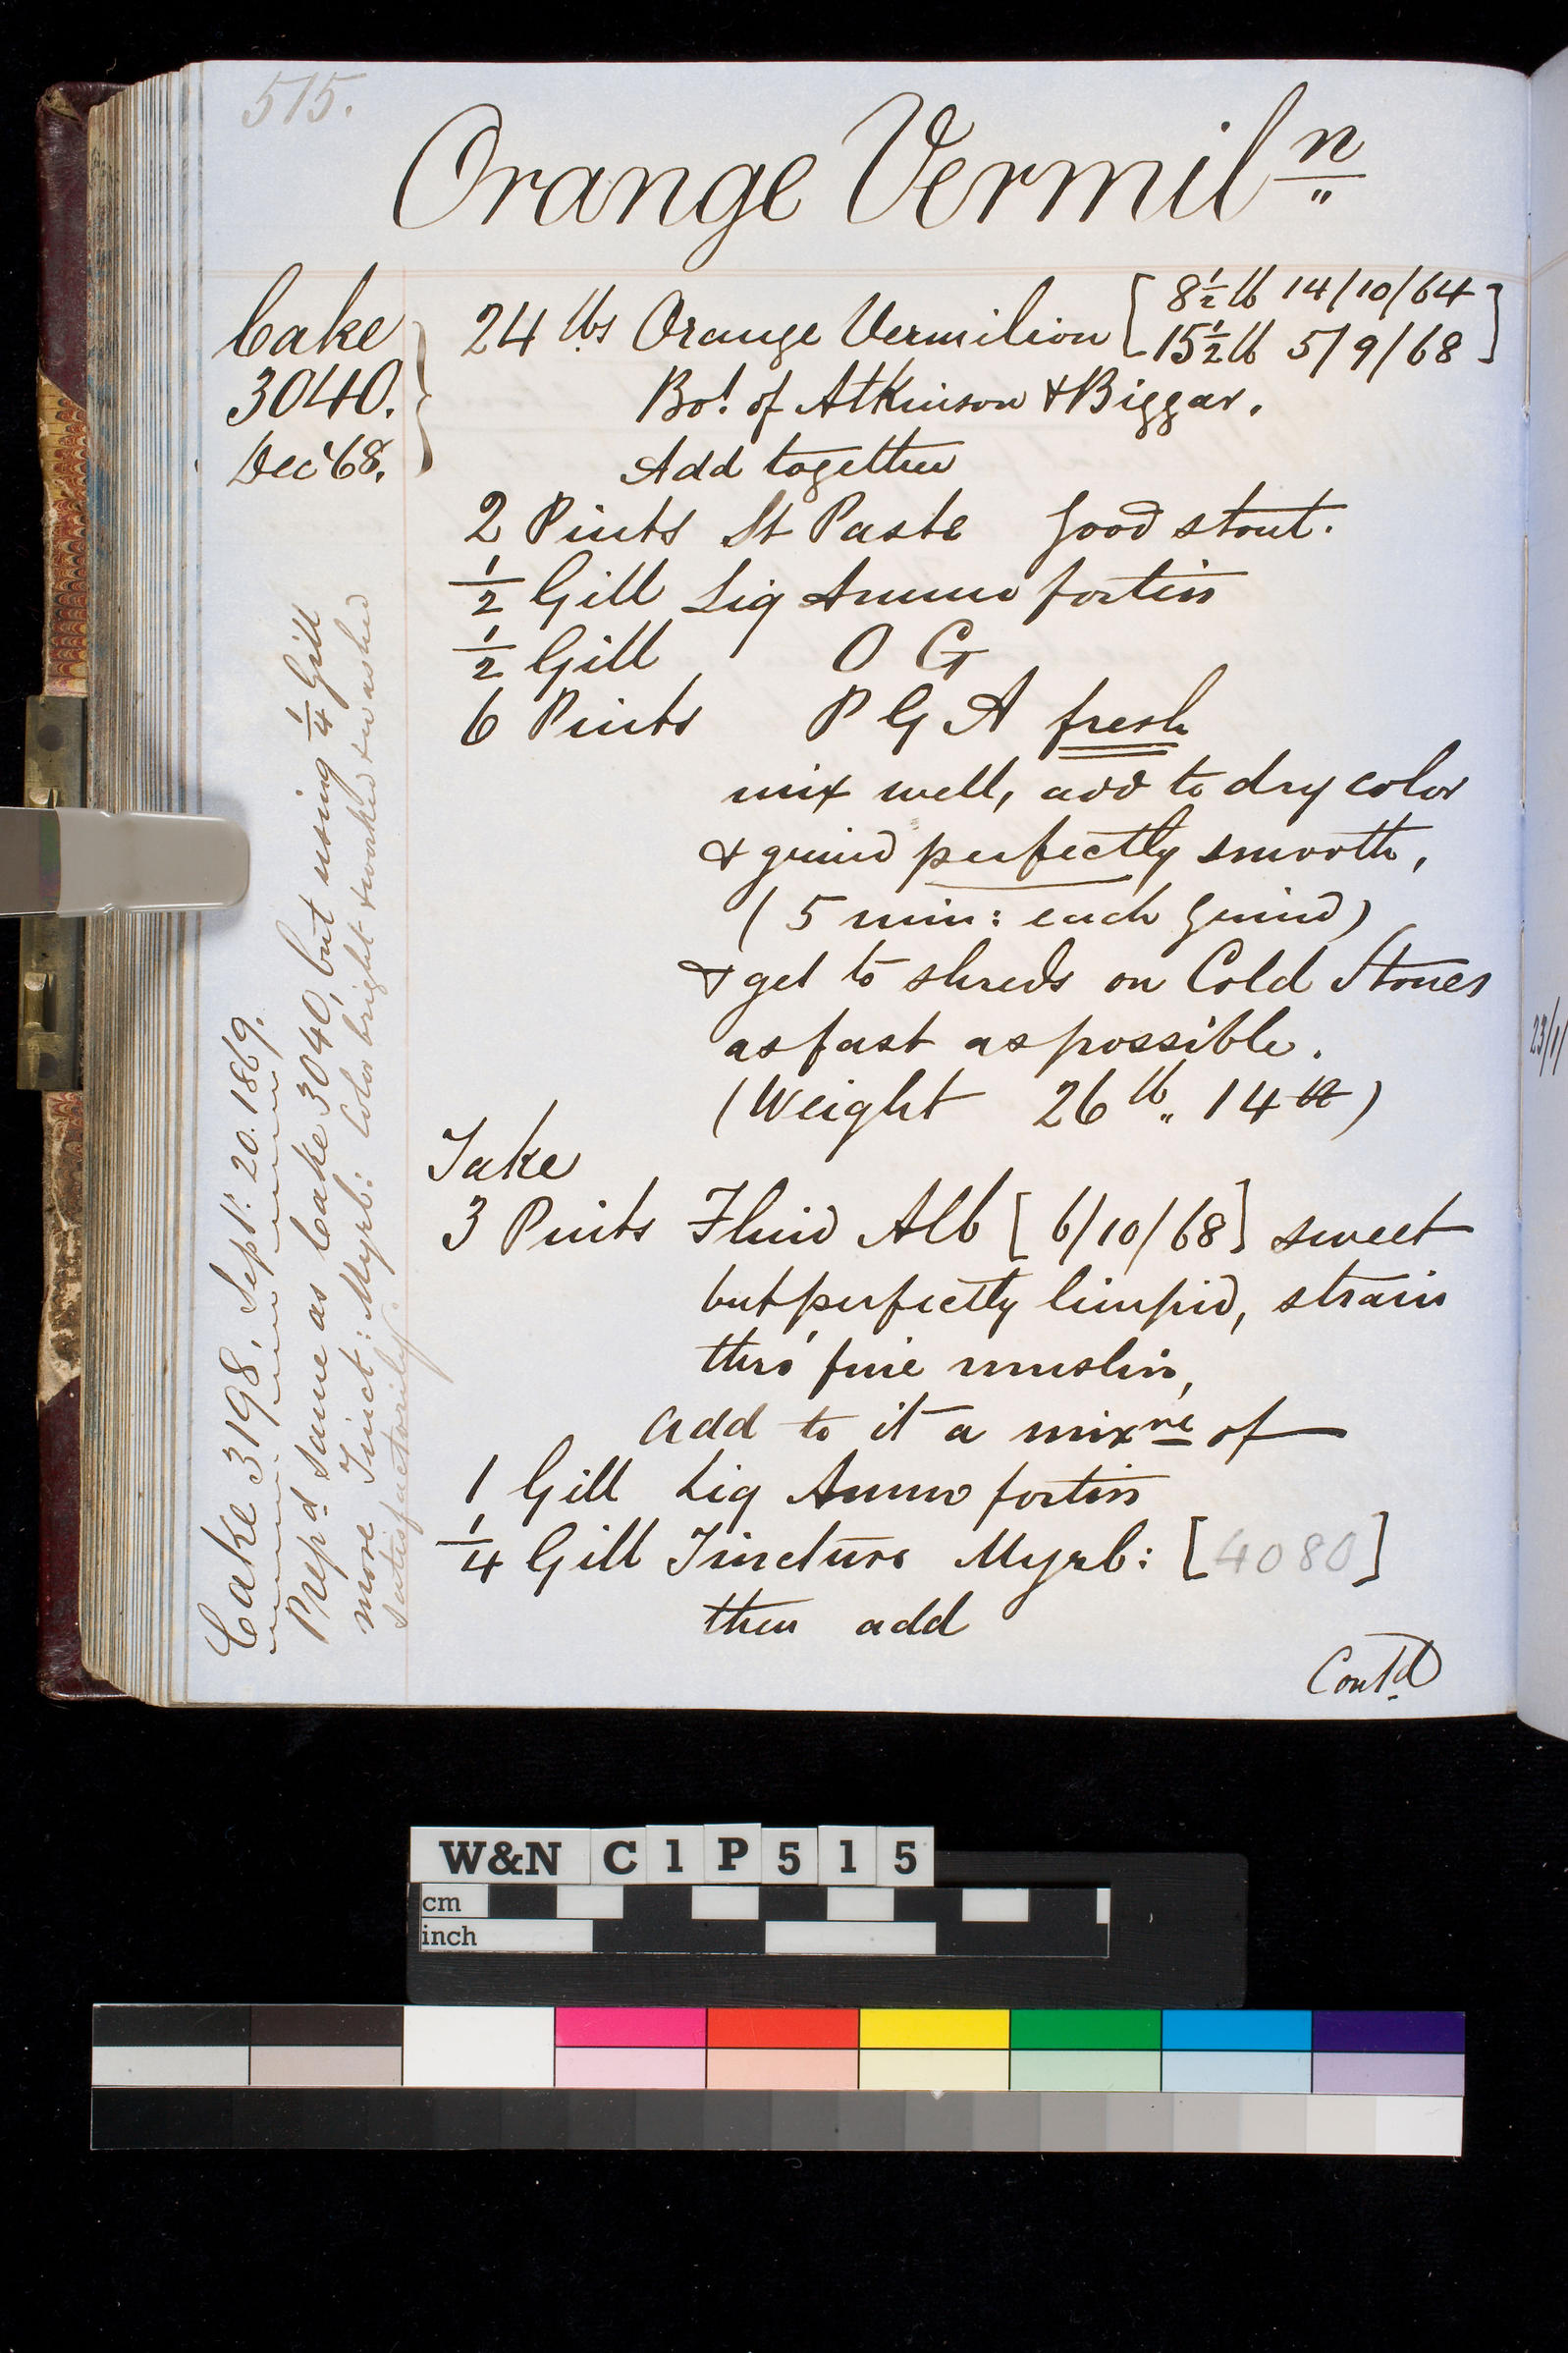 515.
Orange Vermilⁿ
Cake
3040.
Dec '68.
24 lbs Orange Vermilion [8½ lb 14/10/64
15½ lb 5/9/68]
Bot. of Atkinson & Biggar.
Add together
2 Pints St Paste good stout.
½ Gill Liq Ammo fortiss
½ Gill O G
6 Pints P G A fresh
mix well, add to dry color
& grind perfectly smooth,
(5 min: each grind)
& get to shreds on Cold Stones
as fast as possible.
(Weight 26 lb 14)
Take
3 Pints Fluid Alb [6/10/68] sweet
but perfectly limpid, strain
thro' fine muslin,
add to it a mixre of
1 Gill Liq Ammo fortiss
¼ Gill Tincture Myrb: [4080]
then add
Contd
Cake 3198. Sept: 20. 1869.
Prepd same as Cake 3040, but using ¼ Gill
more Tinct: Myrb: Color bright & worked & washed
satisfactorily.
23/1/
W&N C1P515
cm
inch